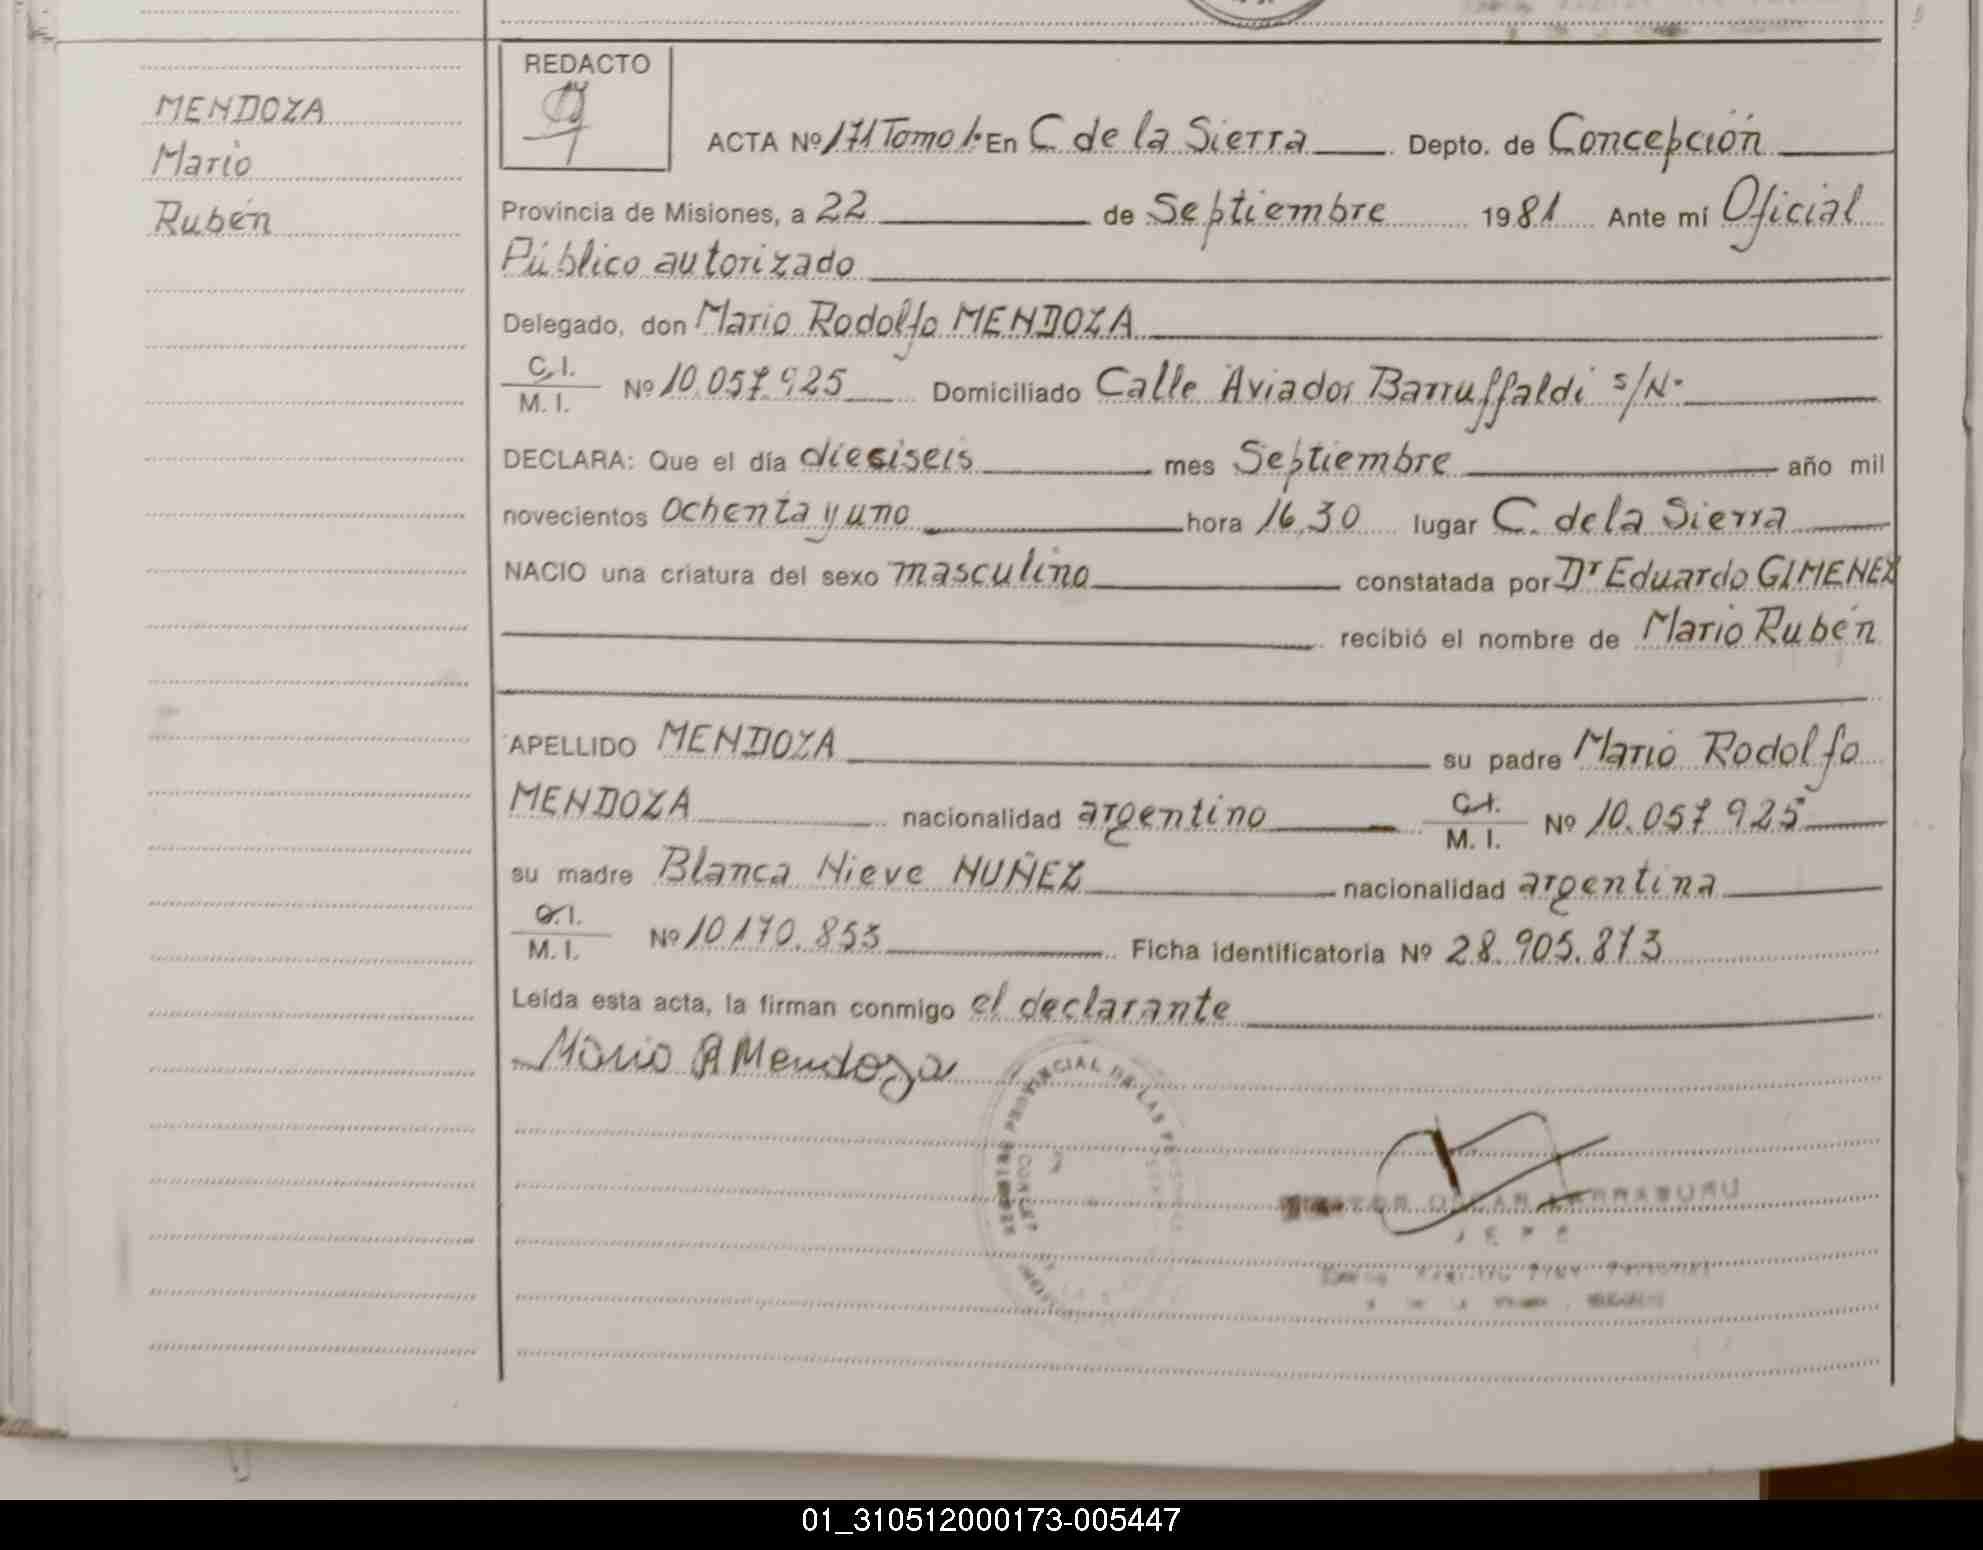 MENDOZA
Mario
Rubén
REDACTO
ACTA Nº 171 Tomo 1º En C de la Sierra Depto. de Concepción
Provincia de Misiones, a 22 de Septiembre 1981 Ante mí Oficial
Público autorizado
Delegado, don Mario Rodolfo MENDOZA
C.I.
M. I. Nº 10.057.925 Domiciliado Calle Aviador Barruffaldi s/Nº
DECLARA: Que el día dieciseis mes Septiembre año mil
novecientos ochenta y uno hora 16,30 lugar C. de la Sierra
NACIO una criatura del sexo masculino constatada por Dr Eduardo GIMENEZ
recibió el nombre de Mario Rubén
APELLIDO MENDOZA su padre Mario Rodolfo
MENDOZA nacionalidad argentino C.I. M. I. Nº 10.057.925
su madre Blanca Nieve NUÑEZ nacionalidad argentina
C.I.
M. I. Nº 10.170.853 Ficha identificatoria Nº 28.905.873
Leída esta acta, la firman conmigo el declarante
Mario R Mendoza
PROVINCIAL DE LAS
OSCAR LARRABURU
JEFE
01_310512000173-005447